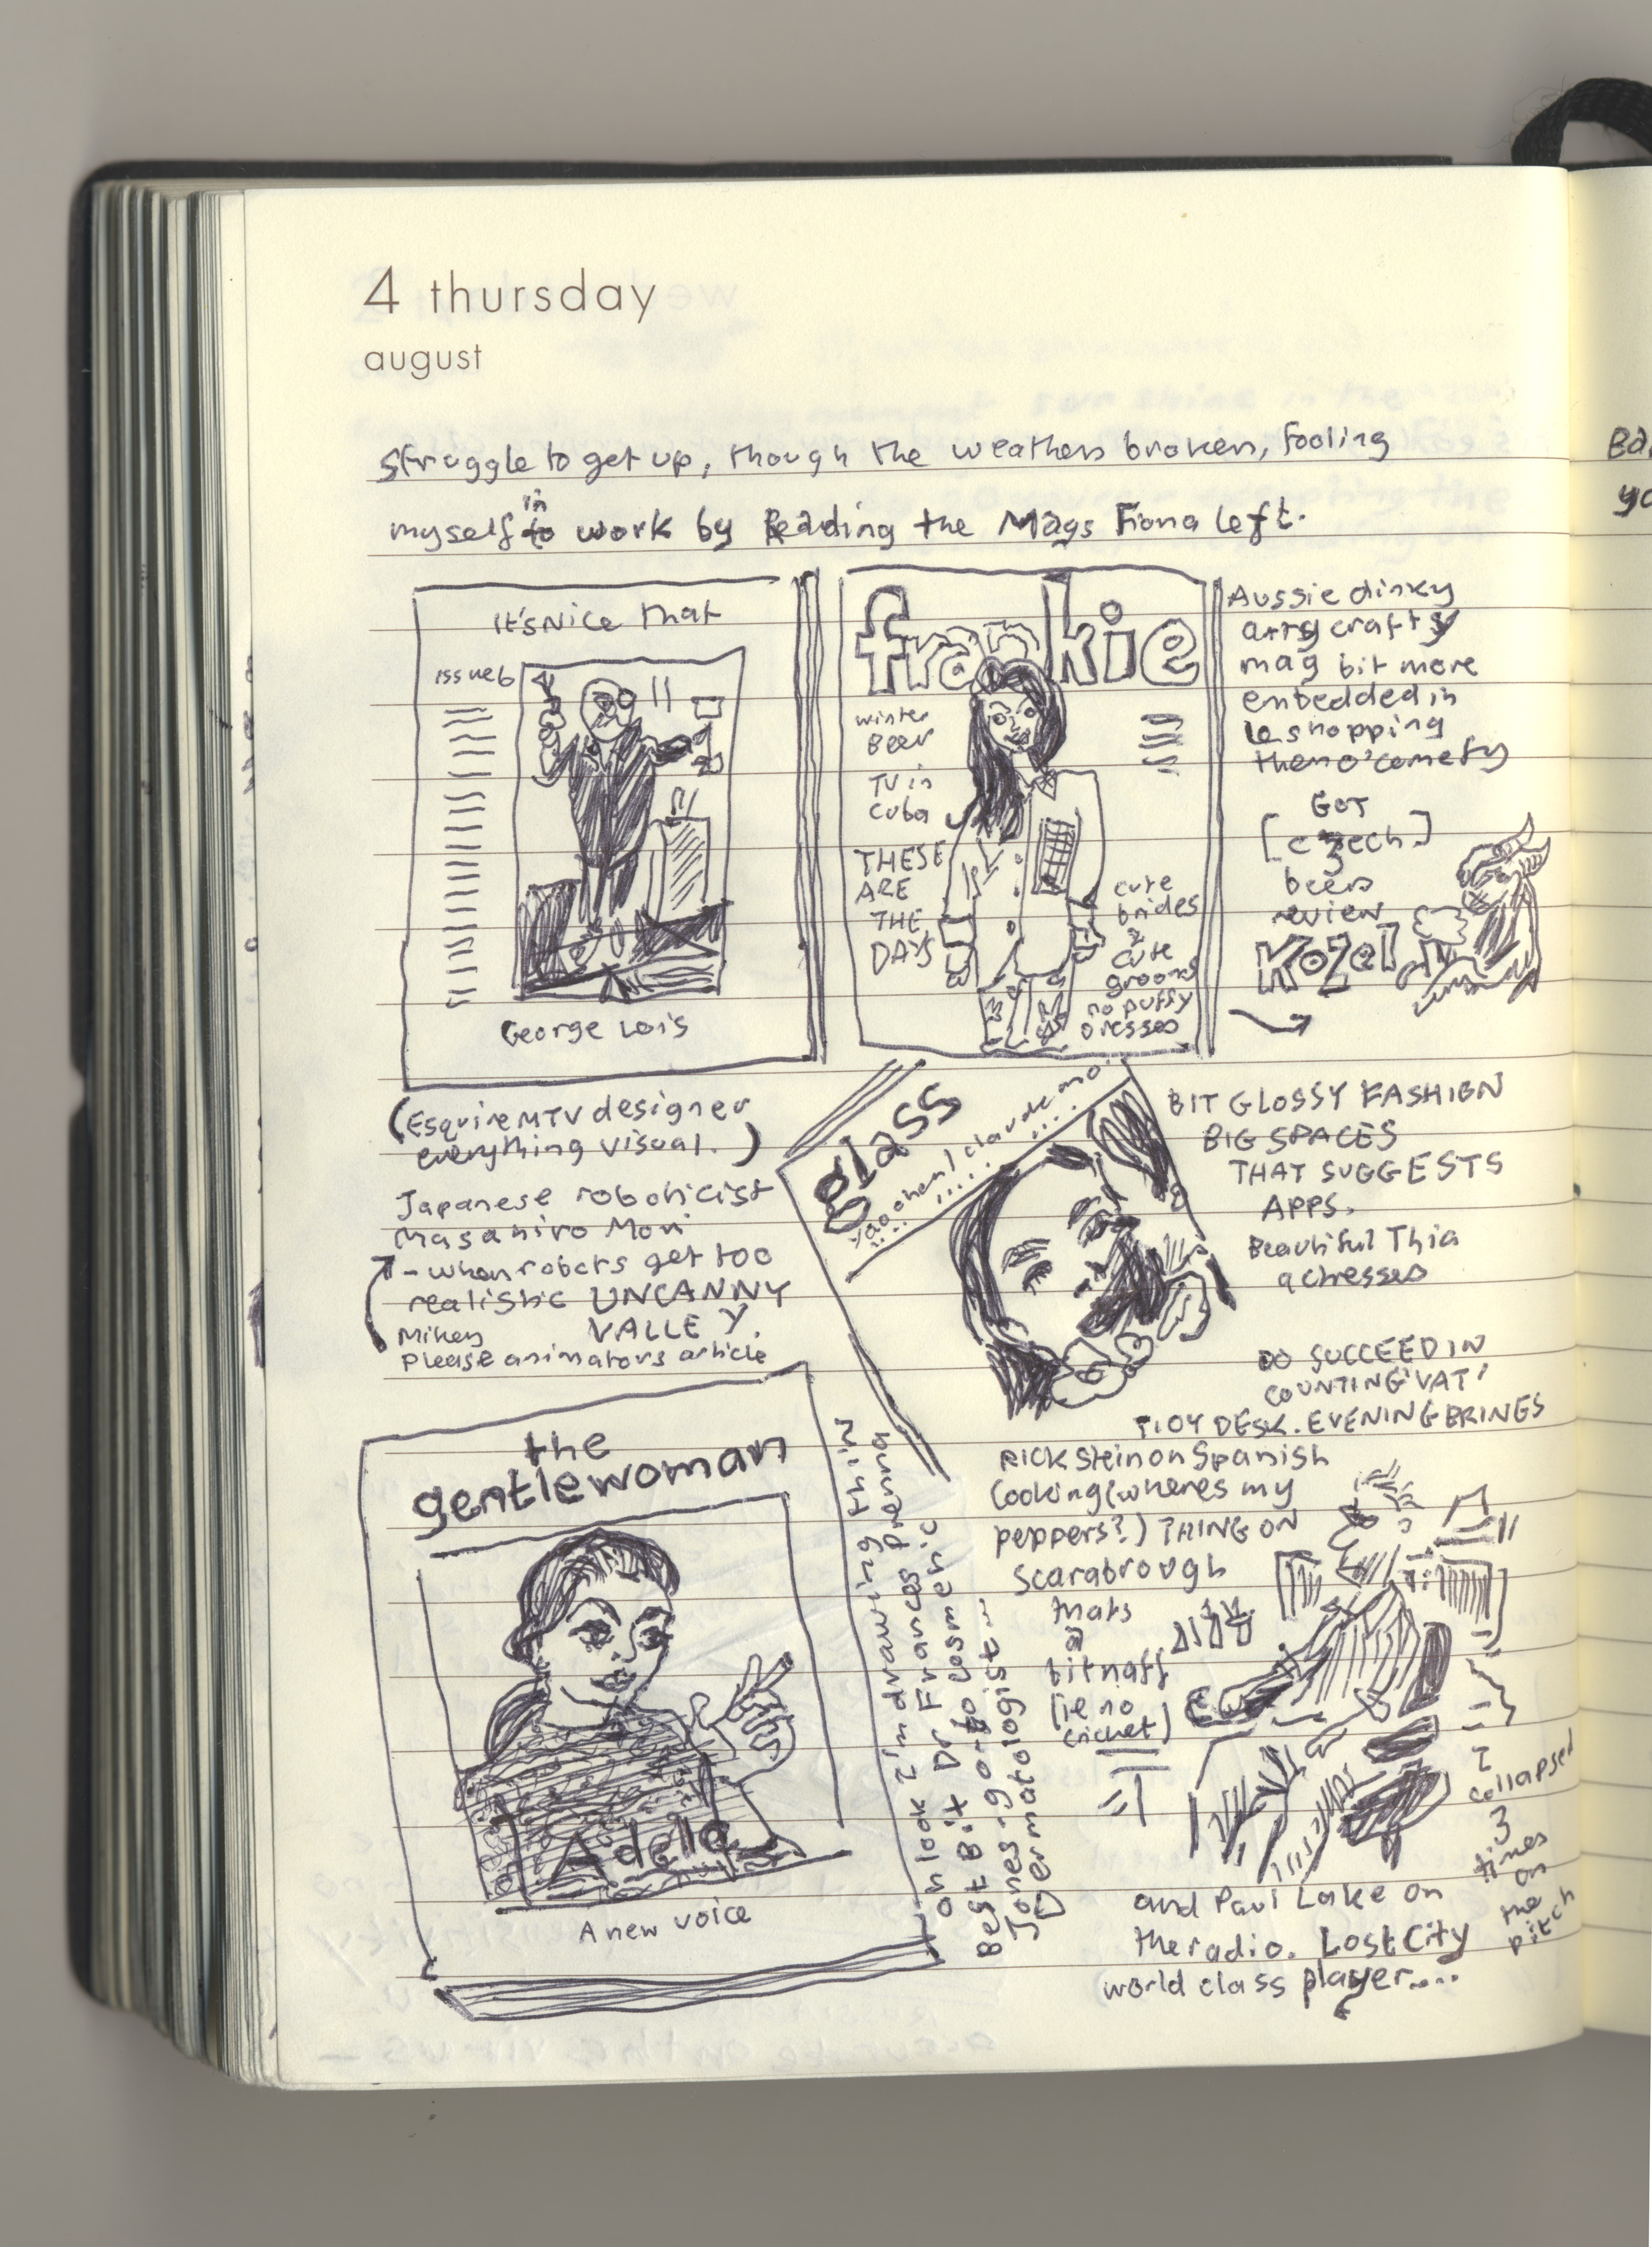 4 thursday
august
struggle to get up, though the weathers broken, fooling
myself in to work by reading the Mags Fiona left.
It's Nice That
issue 6
George Lois
(Esquire MTV designer
everything visual.)
Japanese roboticist
Masahiro Mori
- when robots get too
realistic UNCANNY
VALLEY.
Mikey
Please animators article
frankie
winter
BEER
TV in
Cuba
THESE
ARE
THE
DAYS
cute
brides
&
cute
grooms
no puffy
dresses
Aussie dinky
artsy crafty
mag bit more
embedded in
shopping
GOT
[czech]
beers
review
Kozel
glass
BIT GLOSSY FASHION
BIG SPACES
THAT SUGGESTS
APPS.
Beautiful Thia
actresses
DO SUCCEED IN
COUNTING 'VAT'
TIDY DESK. EVENING BRINGS
RICK Stein on Spanish
Cooking (wheres my
peppers?) THING ON
Scarabrough
Mats
bit naff
(ie no
cricket)
the
gentlewoman
Adele
A new voice
oh look I'm drawing thin
Best Bit Dr Frances Prenna
Jones-go-to cosmetic
Dermatologist...
I
collapsed
3
times
on
the
pitch
and Paul Lake on
the radio. Lost City
world class player....
Ba
yo